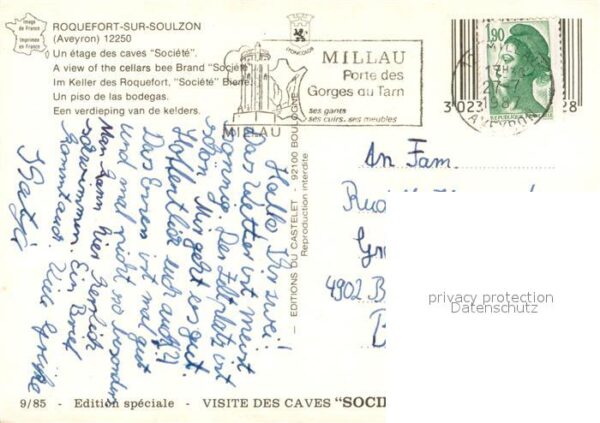 Image
de France
Imprimée
en France
ROQUEFORT-SUR-SOULZON
(Aveyron) 12250
Un étage des caves "Société".
A view of the cellars bee Brand "Société
Im Keller des Roquefort, "Société" Biene
Un piso de las bodegas.
Een verdieping van de kelders.
MILLAU
MILLAU
Porte des
Gorges du Tarn
ses gants
ses cuirs, ses meubles
1,90
17H
27-7
1987
AVEYRON
3 023
28
EDITIONS DU CASTELET - 92100 BOULOGNE
Reproduction interdite
Hallo Ihr zwei!
Das Wetter ist meist
sonnig. Der Zeltplatz ist
schön. Mir geht es gut.
Hoffentlich euch auch?!
Das Essen ist mal gut
und mal nicht so besonders
Man kann hier herrlich
schwimmen. Ein Brief
kommt auch. Viele Grüße
Katja
An Fam.
4902 B
privacy protection
Datenschutz
9/85 - Edition spéciale - VISITE DES CAVES "SOCI